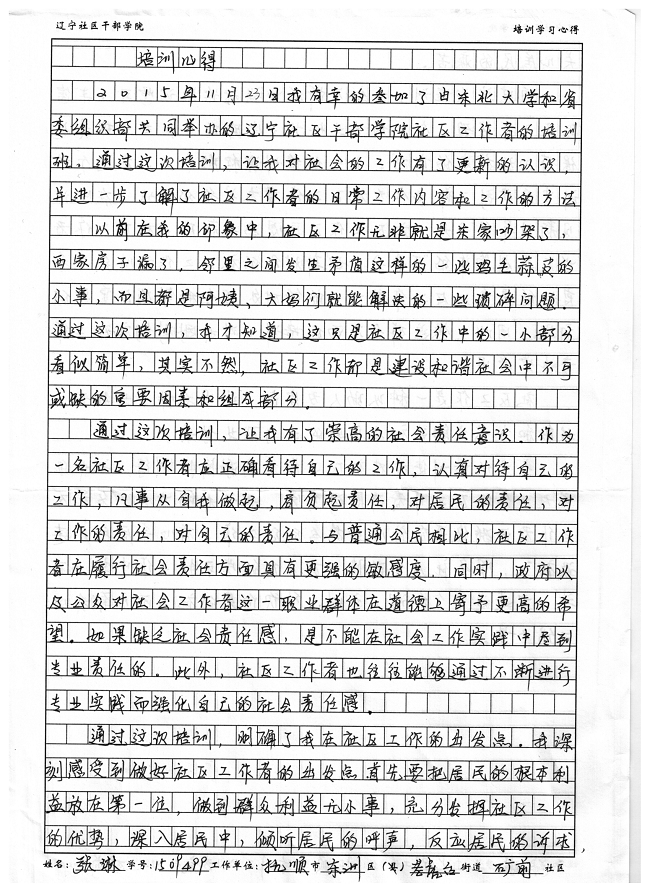 辽宁社区干部学院 培训学习心得
培训心得
2015年11月23日我有幸的参加了由东北大学和省
委组织部共同举办的辽宁社区干部学院社区工作者的培训
班，通过这次培训，让我对社会的工作有了更新的认识，
并进一步了解了社区工作者的日常工作内容和工作的方法
以前在我的印象中，社区工作无非就是东家吵架了，
西家房子漏了，邻里之间发生矛盾这样的一些鸡毛蒜皮的
小事，而且都是阿姨、大妈们就能解决的一些琐碎问题．
通过这次培训，我才知道，这只是社区工作中的一小部分
看似简单，其实不然，社区工作却是建设和谐社会中不可
或缺的重要因素和组成部分．
通过这次培训，让我有了崇高的社会责任意识．作为
一名社区工作者应正确看待自己的工作，认真对待自己的
工作，凡事从自我做起，肩负起责任，对居民的责任，对
工作的责任，对自己的责任．与普通公民相比，社区工作
者在履行社会责任方面具有更强的敏感度．同时，政府以
及公众对社会工作者这一职业群体在道德上寄予更高的希
望．如果缺乏社会责任感，是不能在社会工作实践中尽到
专业责任的．此外，社区工作者也往往能够通过不断进行
专业实践而强化自己的社会责任感．
通过这次培训，明确了我在社区工作的出发点．我深
刻感受到做好社区工作者的出发点首先要把居民的根本利
益放在第一位，做到群众利益无小事，充分发挥社区工作
的优势，深入居民中，倾听居民的呼声，反应居民的诉求，
姓名：张琳 学号：1509499 工作单位：抚顺市东洲区（县）街道 矿前 社区